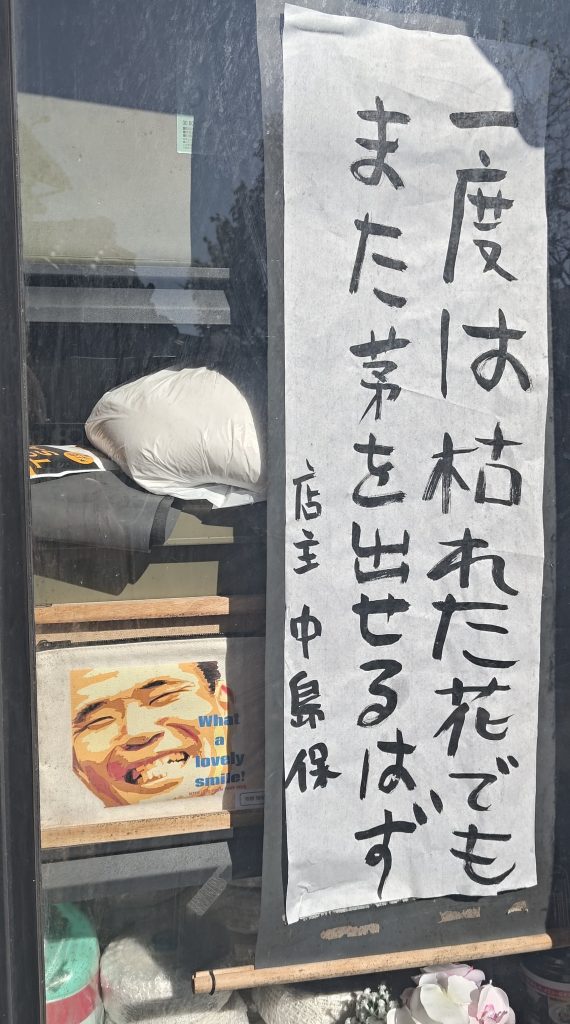 一度は枯れた花でも
また茅を出せるはず
店主 中島保
What
a
lovely
smile!